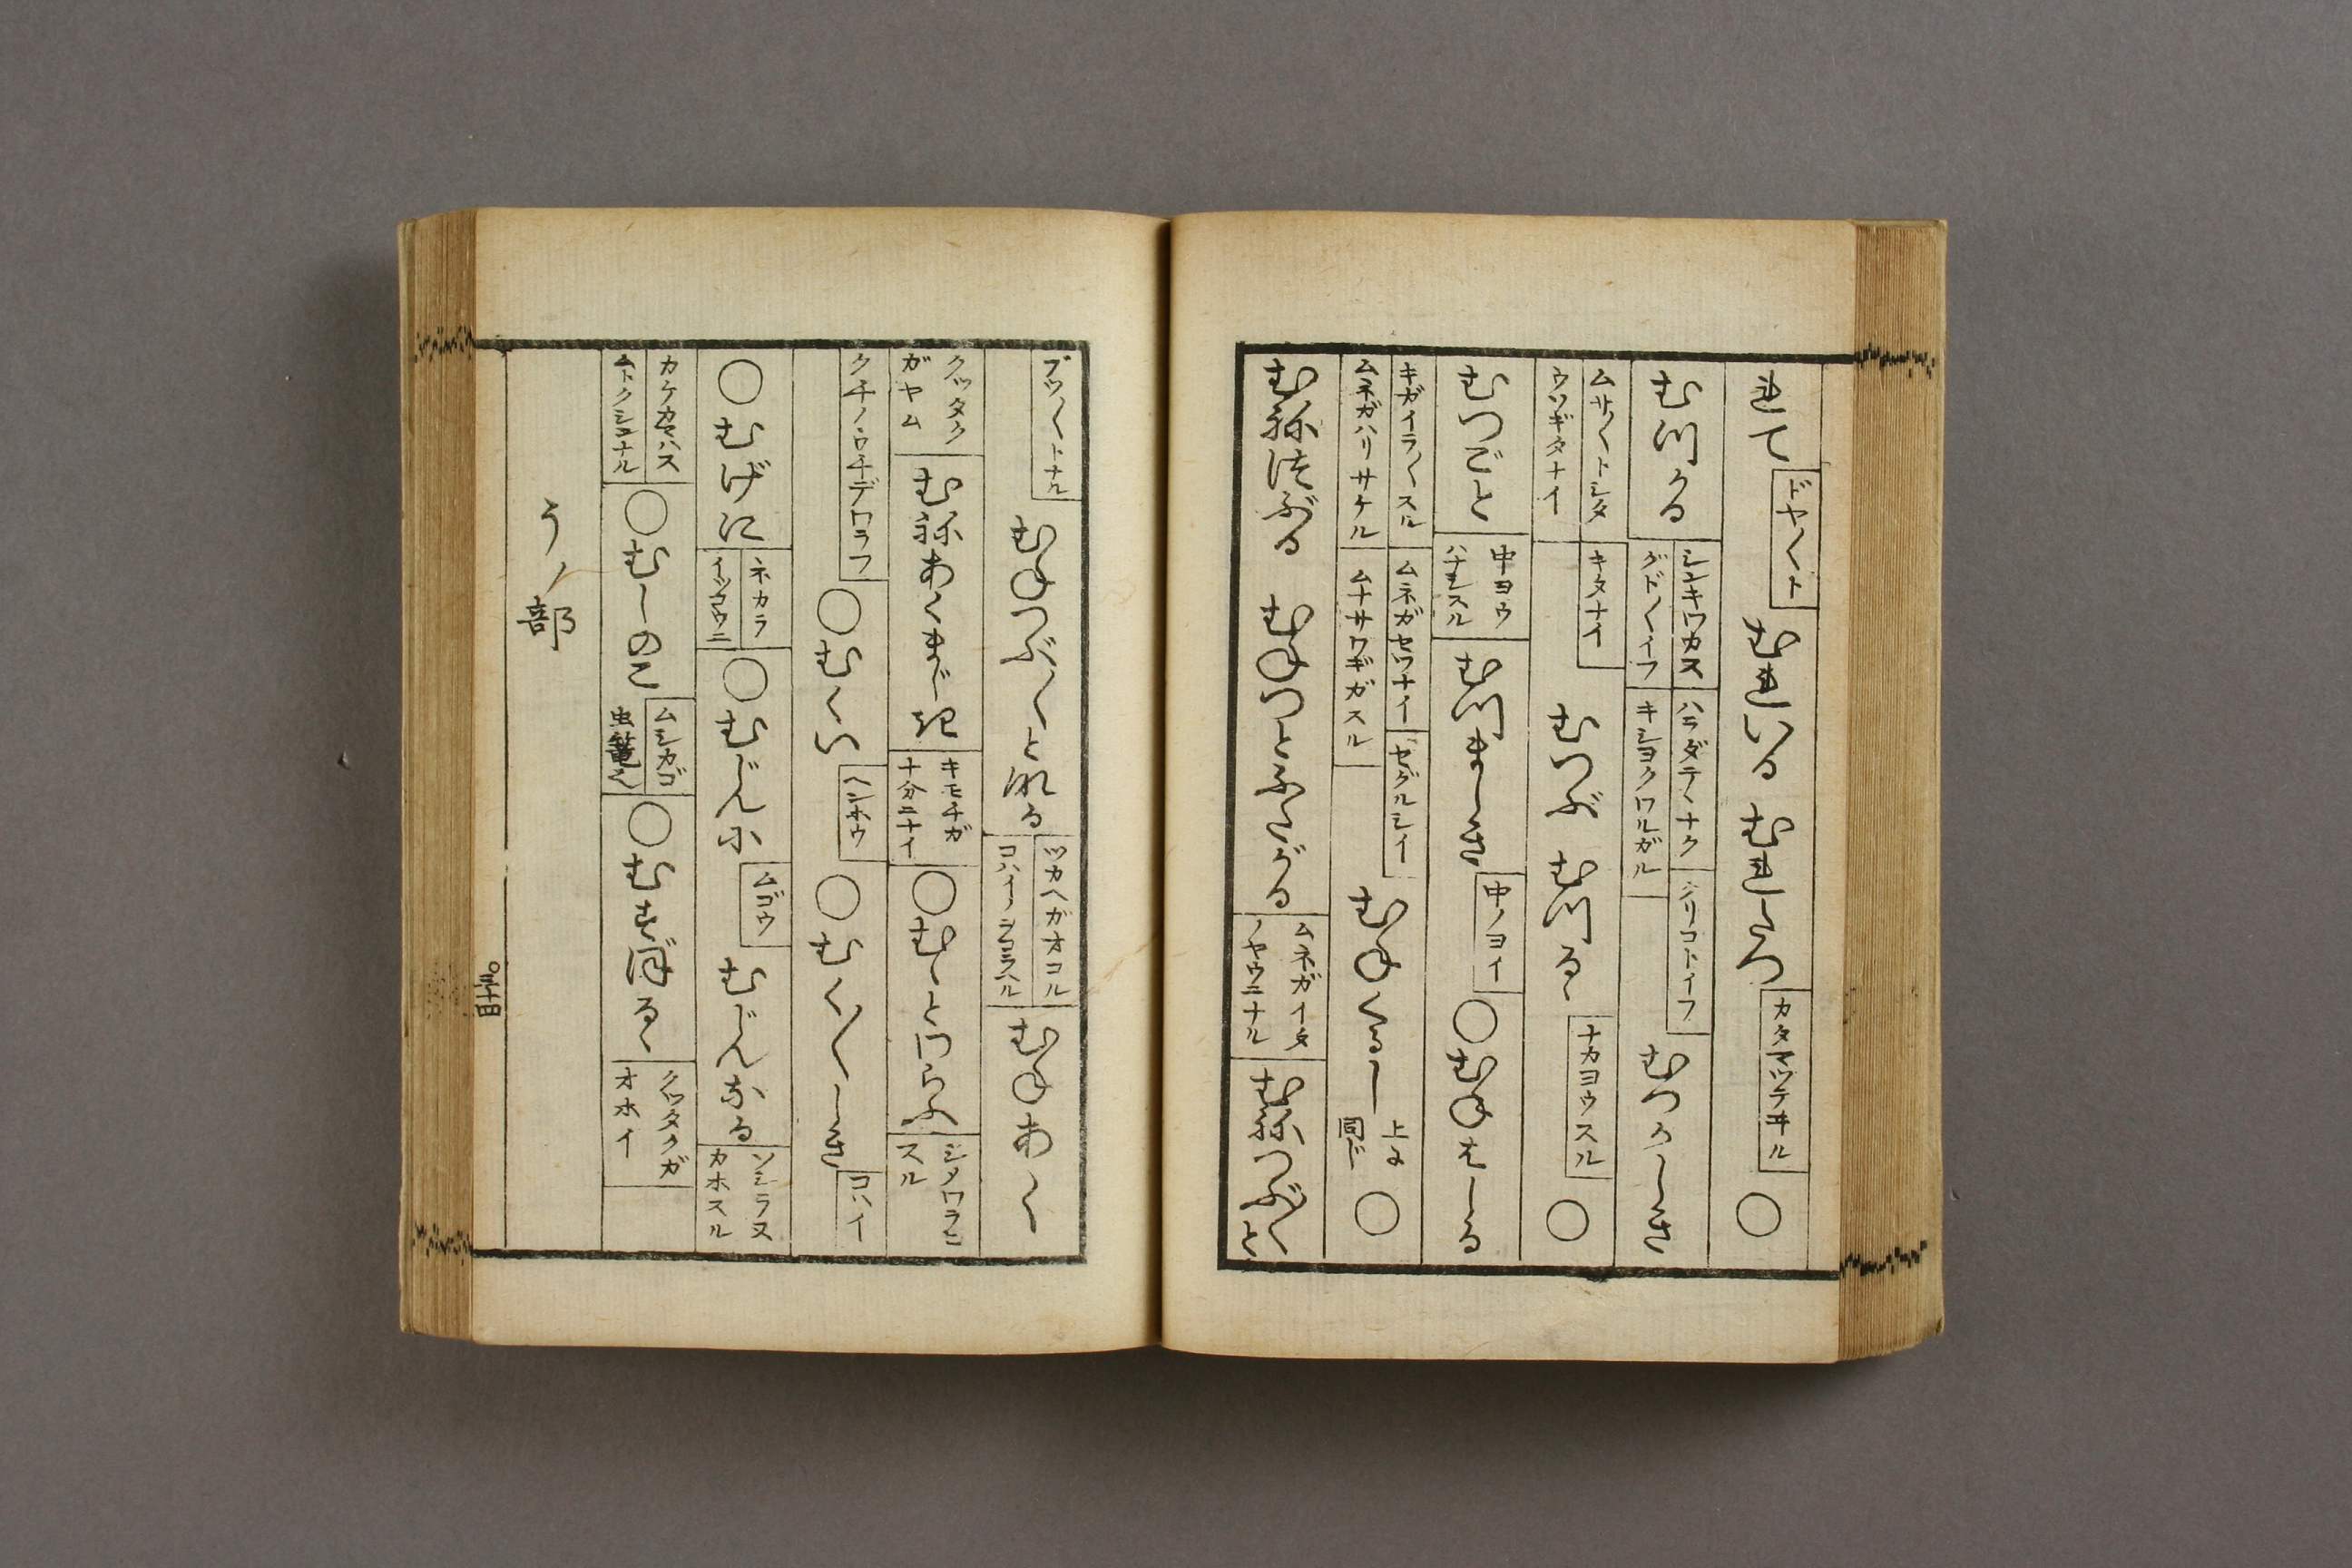 れて ドヤ〱ト むれいる むれたつ カタマツテヰル ○
むつかる シンキワカス グド〱イフ ハラダテヽナク キシヨクワルガル シリコトイフ むつかしき
ムサ〱トシタ ウソギタナイ キタナイ むつぶ むつるヽ ナカヨウスル ○
むつごと 中ヨウ ハナシスル むつましき 中ノヨイ ○むねはしる
キガイラ〱スル ムネガハリサケル ムネガセワナイ ムナサワギガスル セグルシイ むねくるし 上に同じ ○
むねつぶる むねつとふたがる ムネガイタ ノヤウニナル むねつぶ〱と
ブツ〱トナル むねつぶ〱と成る ツカヘガオコル むねあく
クツタク ガヤム むねあくまじき キモチガ 十分ニナイ ○むヽとわらふ シノワラヒ スル
クチノウチデワラフ ○むくい ヘンホウ ○むく〱しき コハイ
○むげに ネカラ イツコウニ ○むじんに ムゴウ むじんなる ソシラヌ カホスル
カケカマハス ムトクシンナル ○むしのこ ムシカゴ 虫篭也 ○むすぼるヽ クツタクガ オホイ
うノ部